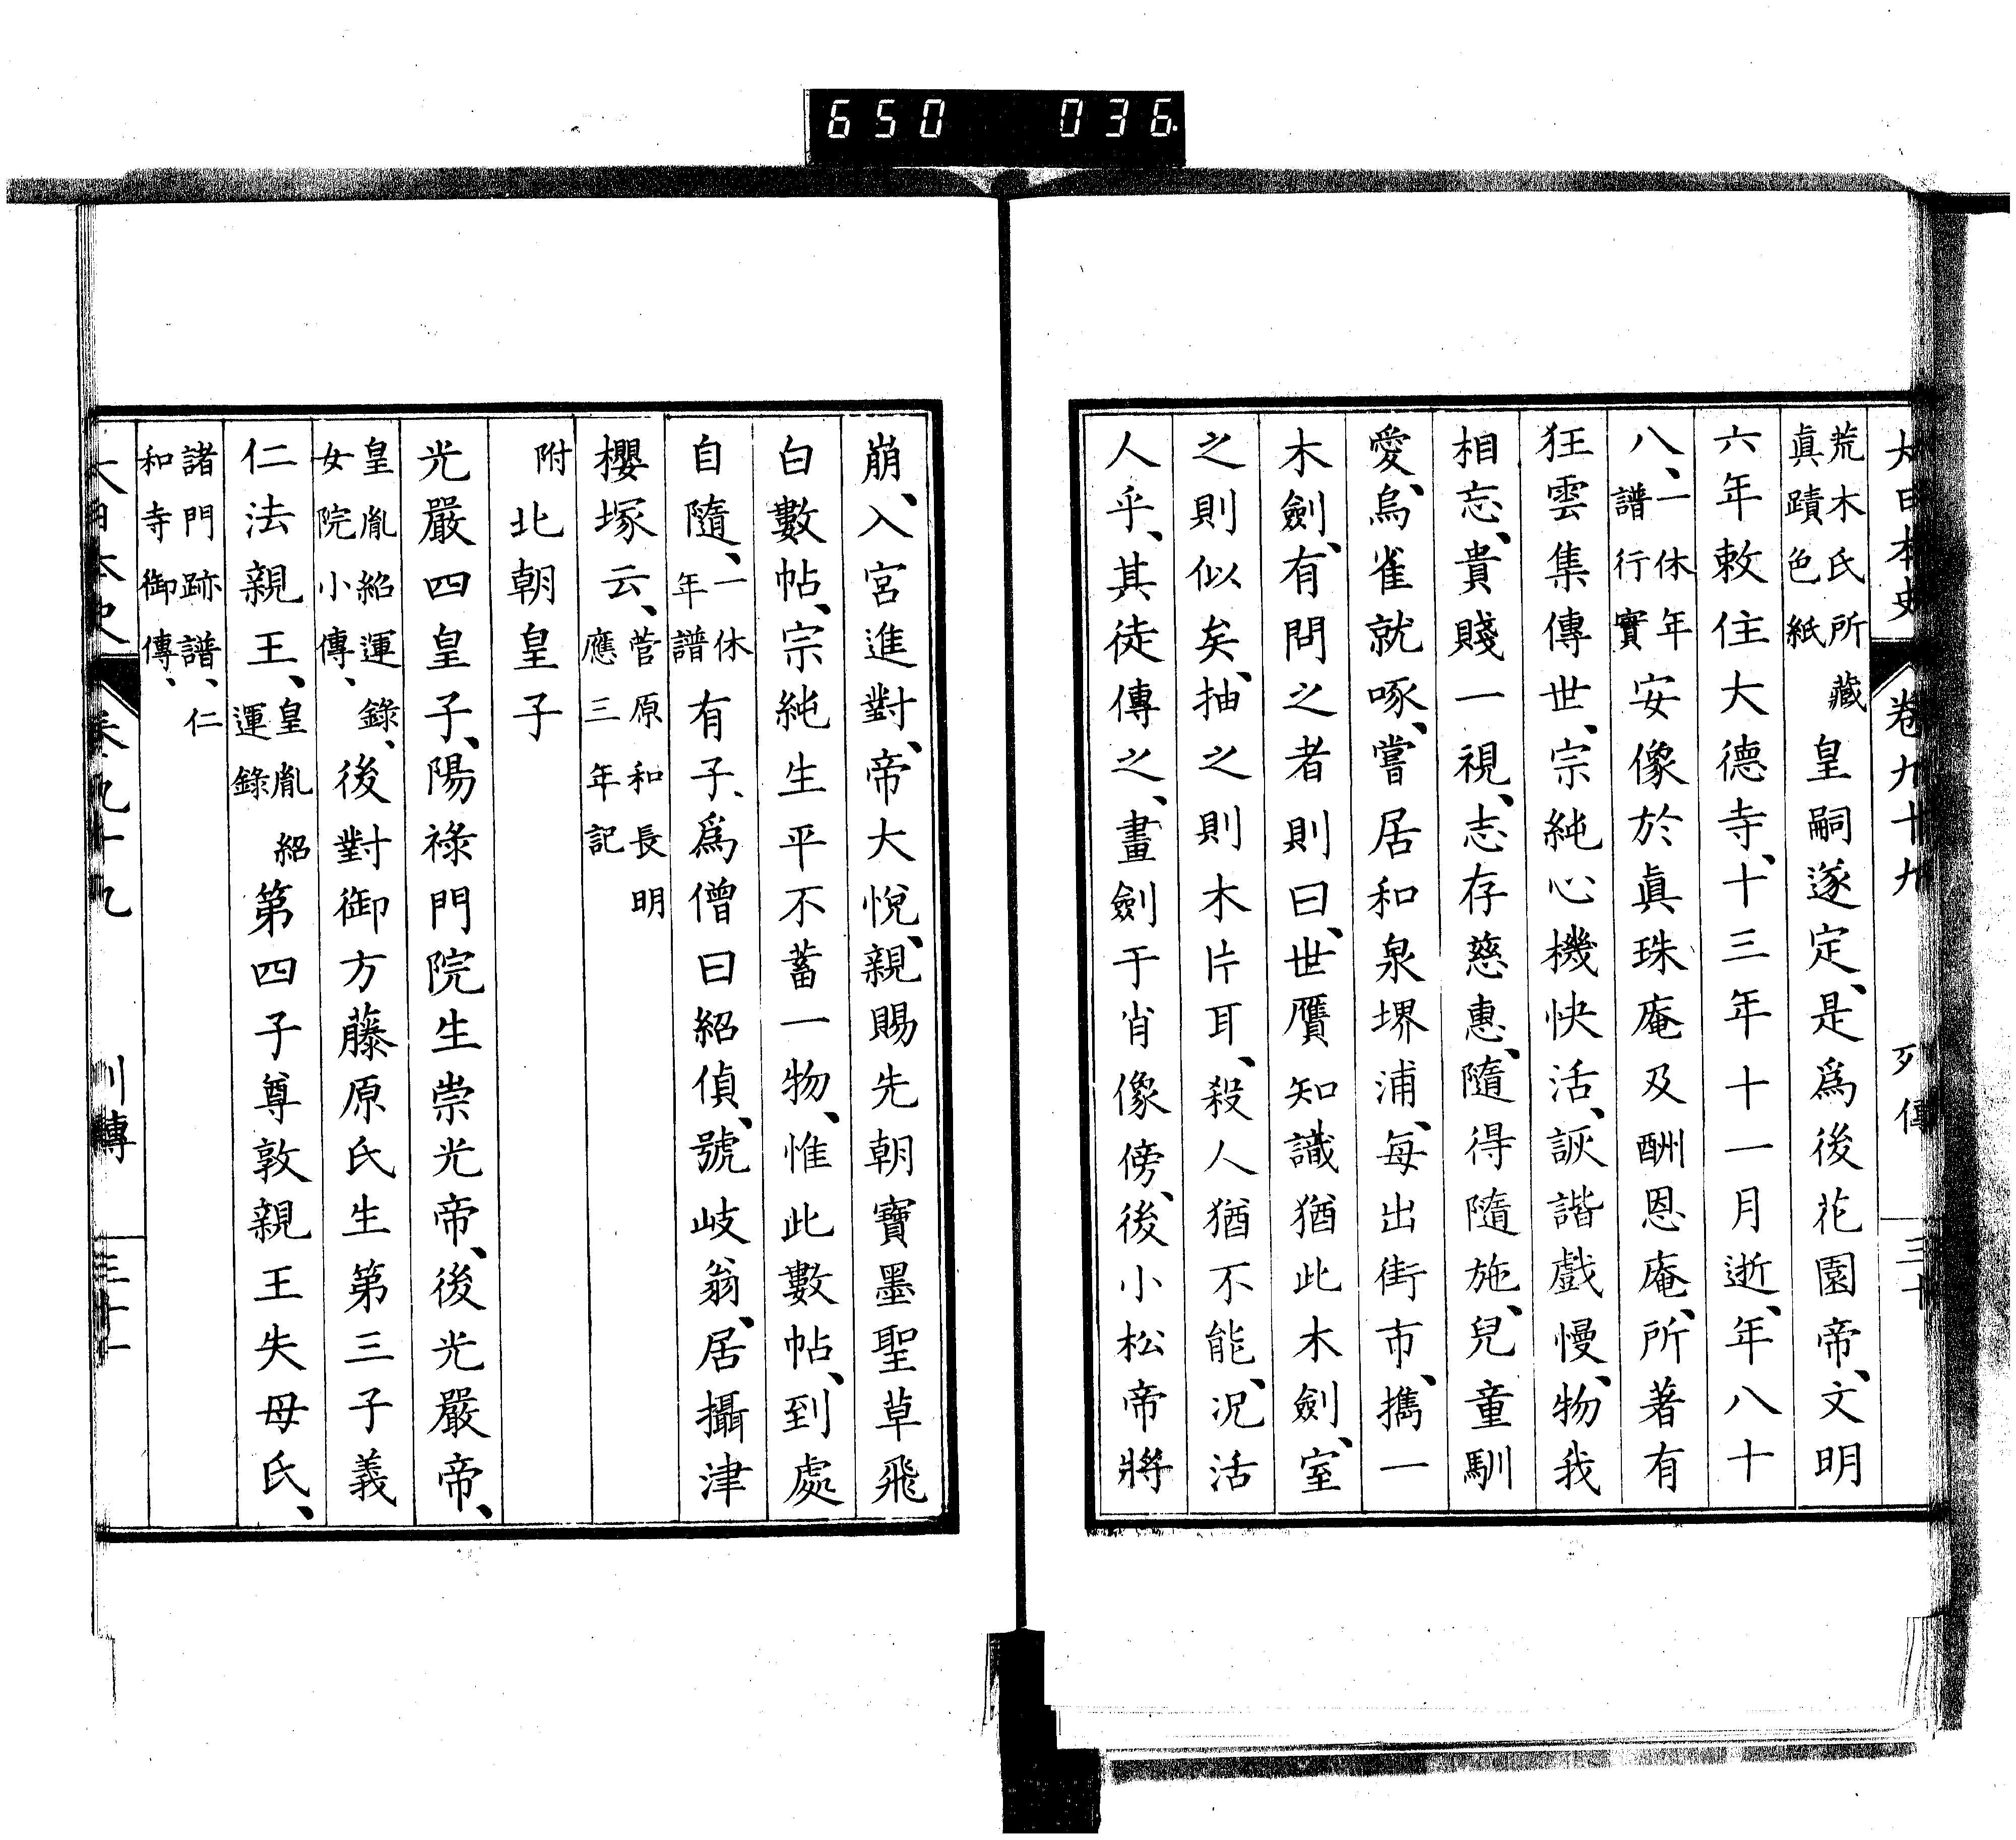 650 036
大日本史 卷九十九 列傳 三十
荒木氏所藏
眞蹟色紙
皇嗣遂定、是爲後花園帝、文明
六年敕住大德寺、十三年十一月逝、年八十
八、一休年譜行實安像於眞珠庵及酬恩庵、所著有
狂雲集傳世、宗純心機快活、詼諧戲慢、物我
相忘、貴賤一視、志存慈惠、隨得隨施、兒童馴
愛、烏雀就啄、嘗居和泉堺浦、每出街市、攜一
木劍、有問之者則曰、世贋知識猶此木劍、室
之則似矣、抽之則木片耳、殺人猶不能、況活
人乎、其徒傳之、畫劍于肖像傍、後小松帝將
崩、入宮進對、帝大悅、親賜先朝寶墨聖草飛
白數帖、宗純生平不蓄一物、惟此數帖、到處
自隨、一休年譜有子、爲僧曰紹偵、號岐翁、居攝津
櫻塚云、菅原和長明應三年記
附北朝皇子
光嚴四皇子、陽祿門院生崇光帝、後光嚴帝、
皇胤紹運錄、女院小傳、後對御方藤原氏生第三子義
仁法親王、皇胤紹運錄第四子尊敦親王失母氏、
諸門跡譜、仁和寺御傳、
大日本史 卷九十九 列傳 三十一